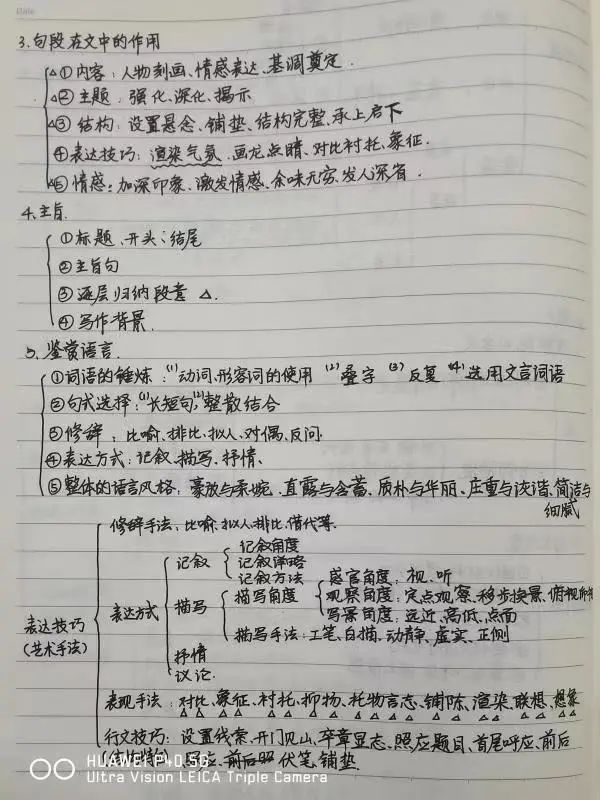 Date
3.句段在文中的作用
△①内容：人物刻画、情感表达、基调奠定.
△②主题：强化、深化、揭示
△③结构：设置悬念、铺垫、结构完整、承上启下
④表达技巧：渲染气氛、画龙点睛、对比衬托、象征.
△⑤情感：加深印象、激发情感、余味无穷、发人深省.
4.主旨.
①标题、开头、结尾
②主旨句
③逐层归纳段意 △.
④写作背景.
5.鉴赏语言.
①词语的锤炼：(1)动词、形容词的使用 (2)叠字 (3)反复 (4)选用文言词语
②句式选择：(1)长短句(2)整散结合
③修辞：比喻、排比、拟人、对偶、反问.
④表达方式：记叙、描写、抒情、
⑤整体的语言风格：豪放与柔婉、直露与含蓄、质朴与华丽、庄重与诙谐、简洁与
细腻
修辞手法：比喻、拟人、排比、借代等.
记叙角度
记叙 记叙详略
记叙方法
感官角度：视、听
表达方式 描写 描写角度 观察角度：定点观察、移步换景、俯视
写景角度：远近、高低、点面
表达技巧
(艺术手法)
描写手法：工笔、白描、动静、虚实、正侧
抒情
议论.
表现手法：对比、象征、衬托、抑扬、托物言志、铺陈、渲染、联想、想象
行文技巧：设置线索、开门见山、卒章显志、照应题目、首尾呼应、前后
(结构特征) 呼应、前后照 伏笔、铺垫.
HUAWEI P40 5G
Ultra Vision LEICA Triple Camera